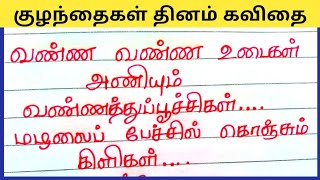 குழந்தைகள் தினம் கவிதை
வண்ண வண்ண உடைகள்
அணியும்
வண்ணத்துப்பூச்சிகள்....
மழலைப் பேச்சில் கொஞ்சும்
கிளிகள்....